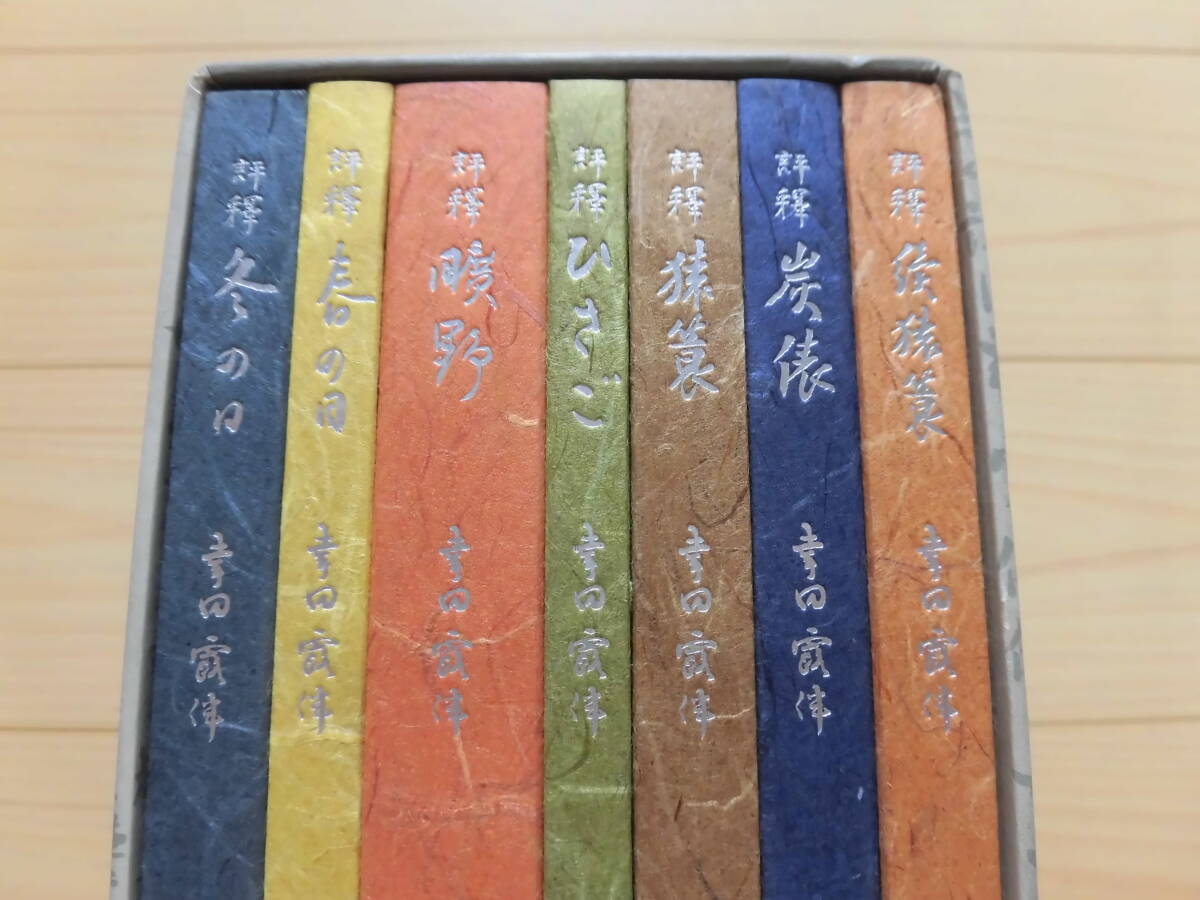 評釋 冬の日 幸田露伴
評釋 春の日 幸田露伴
評釋 曠野 幸田露伴
評釋 ひさご 幸田露伴
評釋 猿簑 幸田露伴
評釋 炭俵 幸田露伴
評釋 續猿簑 幸田露伴